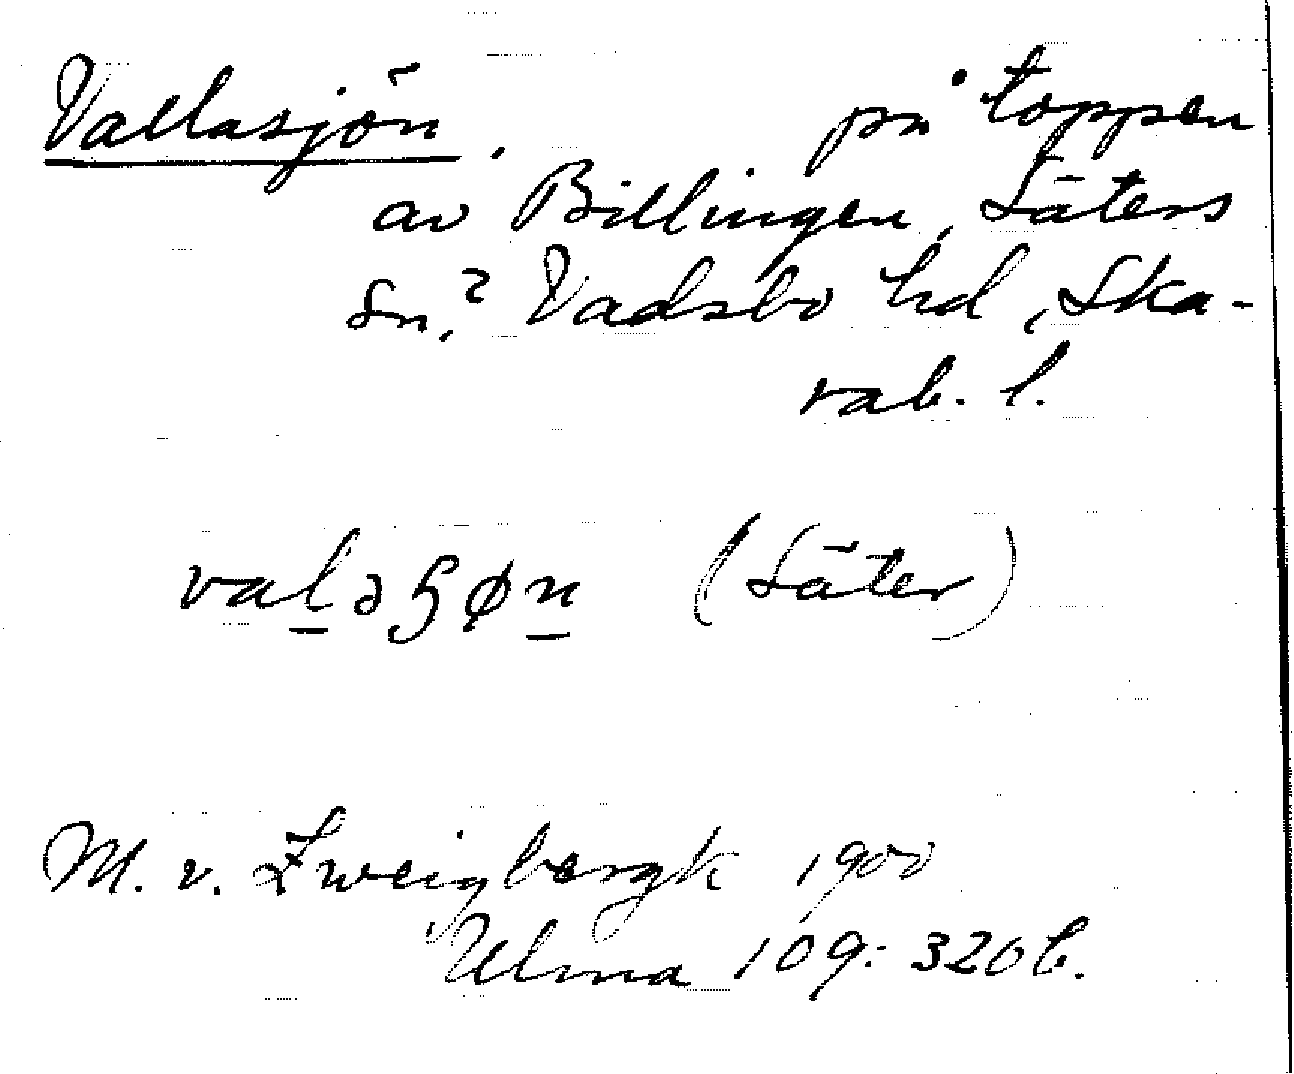 Vallasjön. på toppen
av Billingen, Säters
sn.? Vadsbo hd, Ska-
rab. l.
valəɧøn (Säter)
M. v. Zweigbergk 1900
Ulma 109: 320 b.